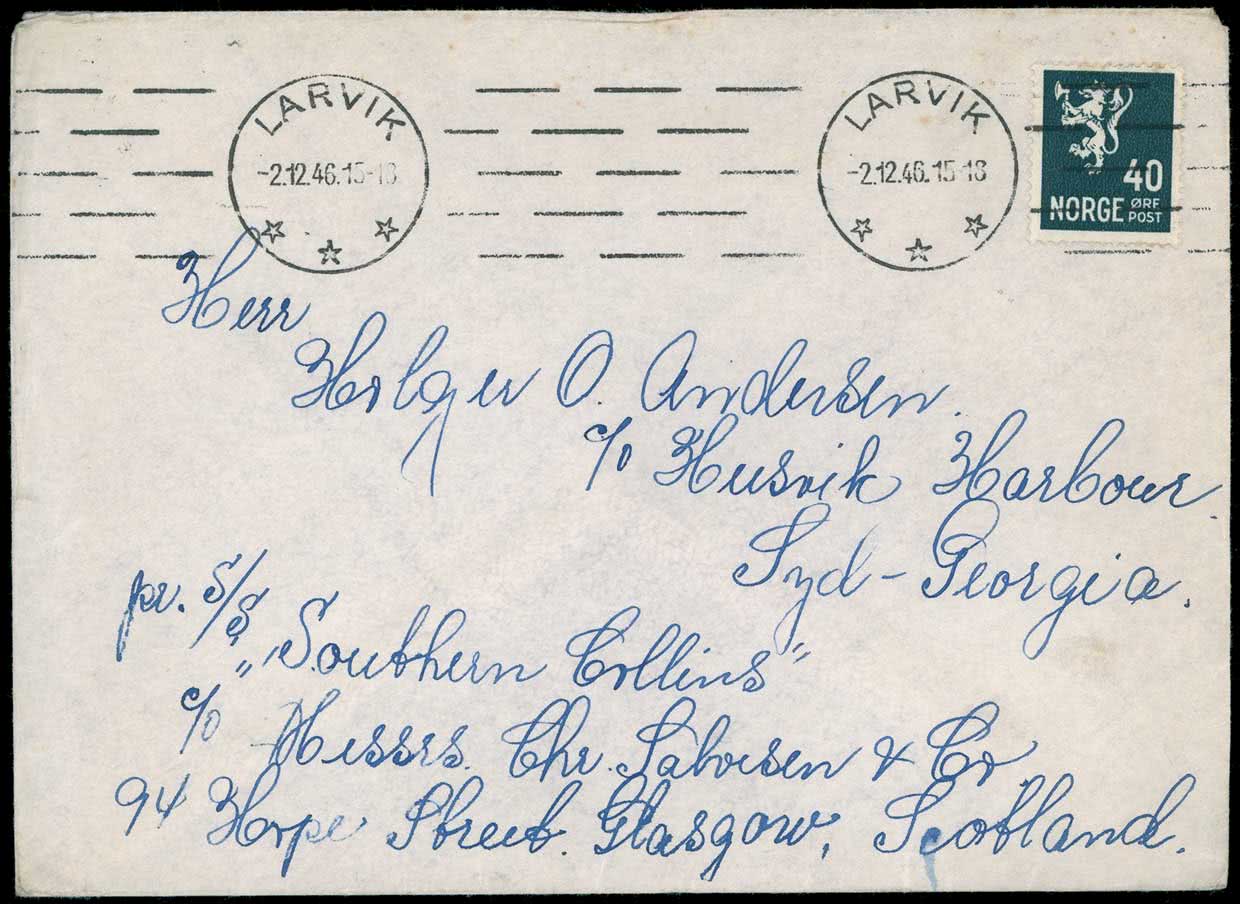 LARVIK
-2.12.46.15-18
LARVIK
-2.12.46.15-18
40
NORGE ØRE POST
Herr
Holger O. Andersen.
c/o Husvik Harbour.
Syd-Georgia.
pr. S/S
„Southern Collins"
c/o Messrs. Chr. Salvesen & Co
94 Hope Street. Glasgow, Scotland.